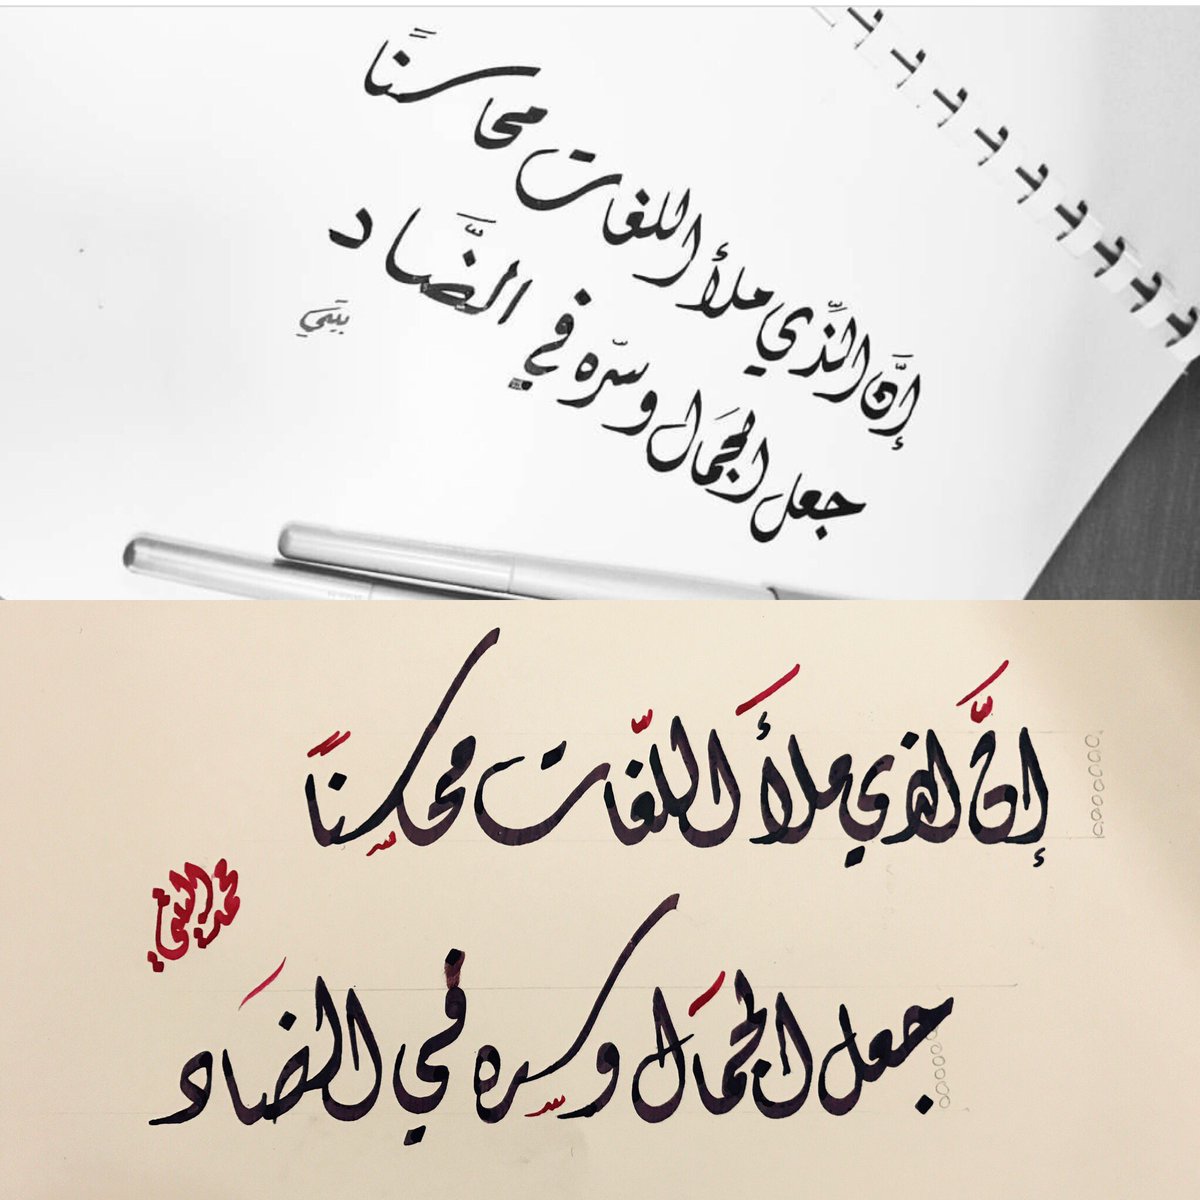 إنَّ الَّذي ملأ اللغات محاسنًا
جعل الجمَال وسرّه في الضَّاد
إنَّ الذي ملأَ اللّغات محاسّنًا
جعل الجمَال وسرّه في الضَاد